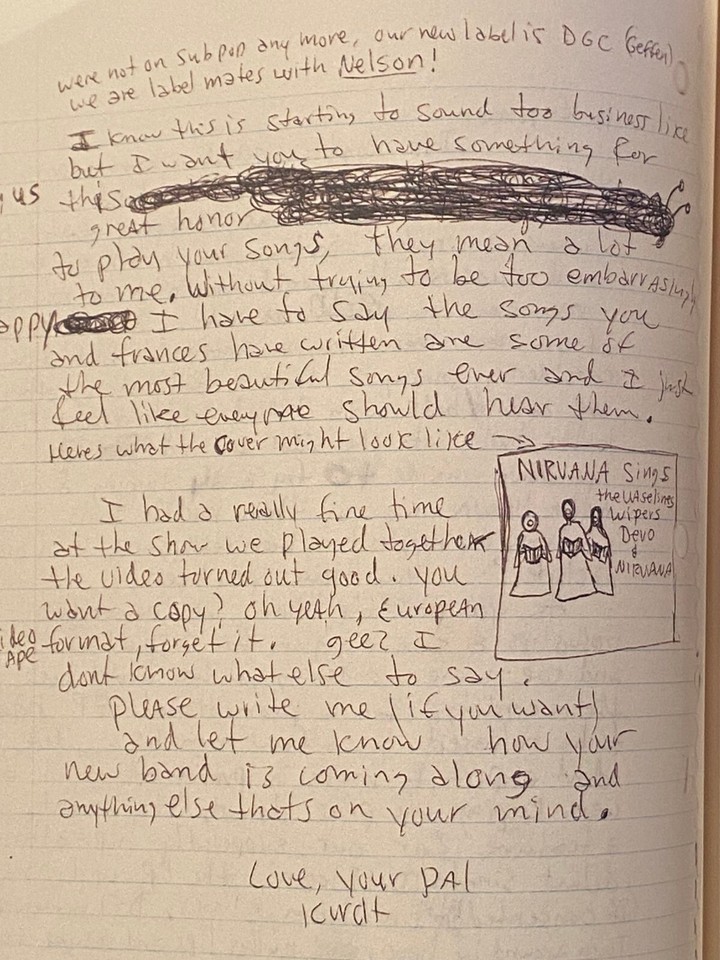 were not on subpop any more, our new label is DGC (Geffen)
we are label mates with Nelson!
I know this is starting to sound too business like
but I want you to have something for
us this
great honor
to play your songs, they mean a lot
to me. without trying to be too embarrasingly
appy I have to say the songs you
and frances have written are some of
the most beautiful songs ever and I just
feel like everyone should hear them.
Heres what the cover might look like →
NIRVANA Sings
the VASelines
Wipers
Devo
&
NIRVANA
I had a really fine time
at the show we played together
the video turned out good. you
want a copy? oh yeah, European
ideo format, forget it. geez I
ape
dont know what else to say.
please write me (if you want)
and let me know how your
new band is coming along and
anything else thats on your mind.
Love, your pal
Kurdt